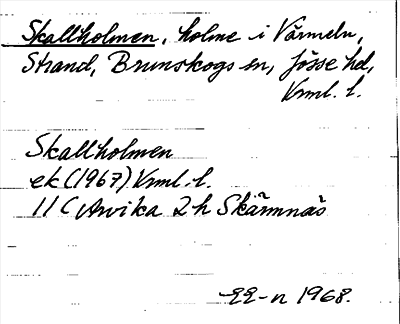 Skallholmen, holme i Värmeln,
Strand, Brunskogs sn, Jösse hd,
Vrml. l.
Skallholmen
ek (1967) Vrml. l.
11 C Arvika 2 h Skärmnäs
-n 1968.